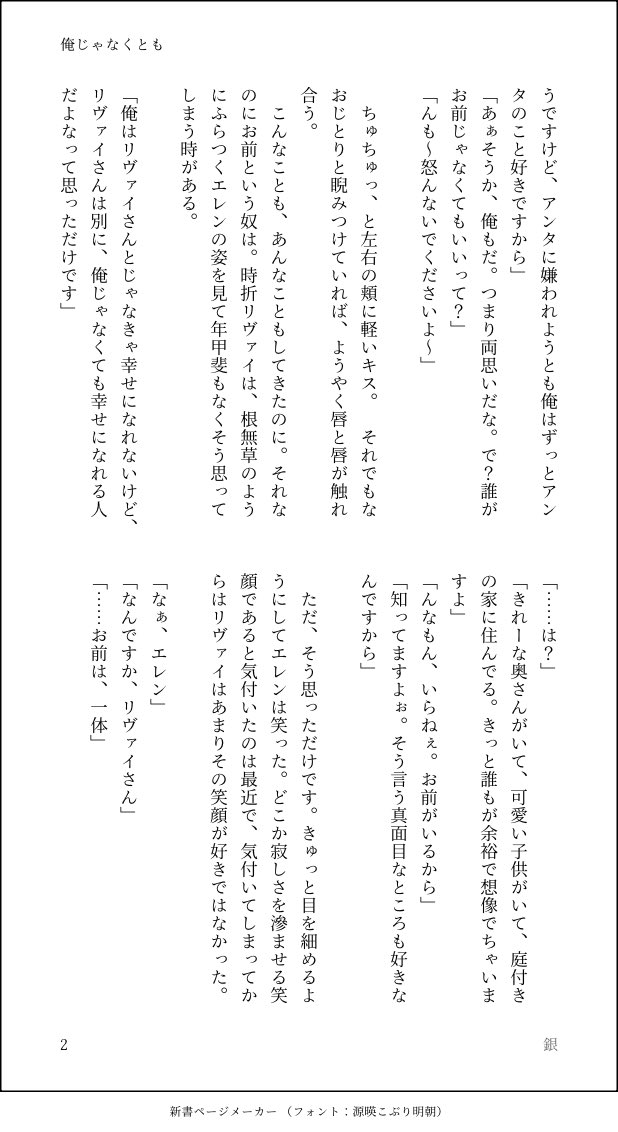 俺じゃなくとも
うですけど、アンタに嫌われようとも俺はずっとアン
タのこと好きですから」
「あぁそうか、俺もだ。つまり両思いだな。で？誰が
お前じゃなくてもいいって？」
「んも〜怒んないでくださいよ〜」
ちゅちゅっ、と左右の頬に軽いキス。　それでもな
おじとりと睨みつけていれば、ようやく唇と唇が触れ
合う。
こんなことも、あんなこともしてきたのに。それな
のにお前という奴は。時折リヴァイは、根無草のよう
にふらつくエレンの姿を見て年甲斐もなくそう思って
しまう時がある。
「俺はリヴァイさんとじゃなきゃ幸せになれないけど、
リヴァイさんは別に、俺じゃなくても幸せになれる人
だよなって思っただけです」
「……は？」
「きれーな奥さんがいて、可愛い子供がいて、庭付き
の家に住んでる。きっと誰もが余裕で想像でちゃいま
すよ」
「んなもん、いらねぇ。お前がいるから」
「知ってますよぉ。そう言う真面目なところも好きな
んですから」
ただ、そう思っただけです。きゅっと目を細めるよ
うにしてエレンは笑った。どこか寂しさを滲ませる笑
顔であると気付いたのは最近で、気付いてしまってか
らはリヴァイはあまりその笑顔が好きではなかった。
「なぁ、エレン」
「なんですか、リヴァイさん」
「……お前は、一体」
2
銀
新書ページメーカー（フォント：源暎こぶり明朝）